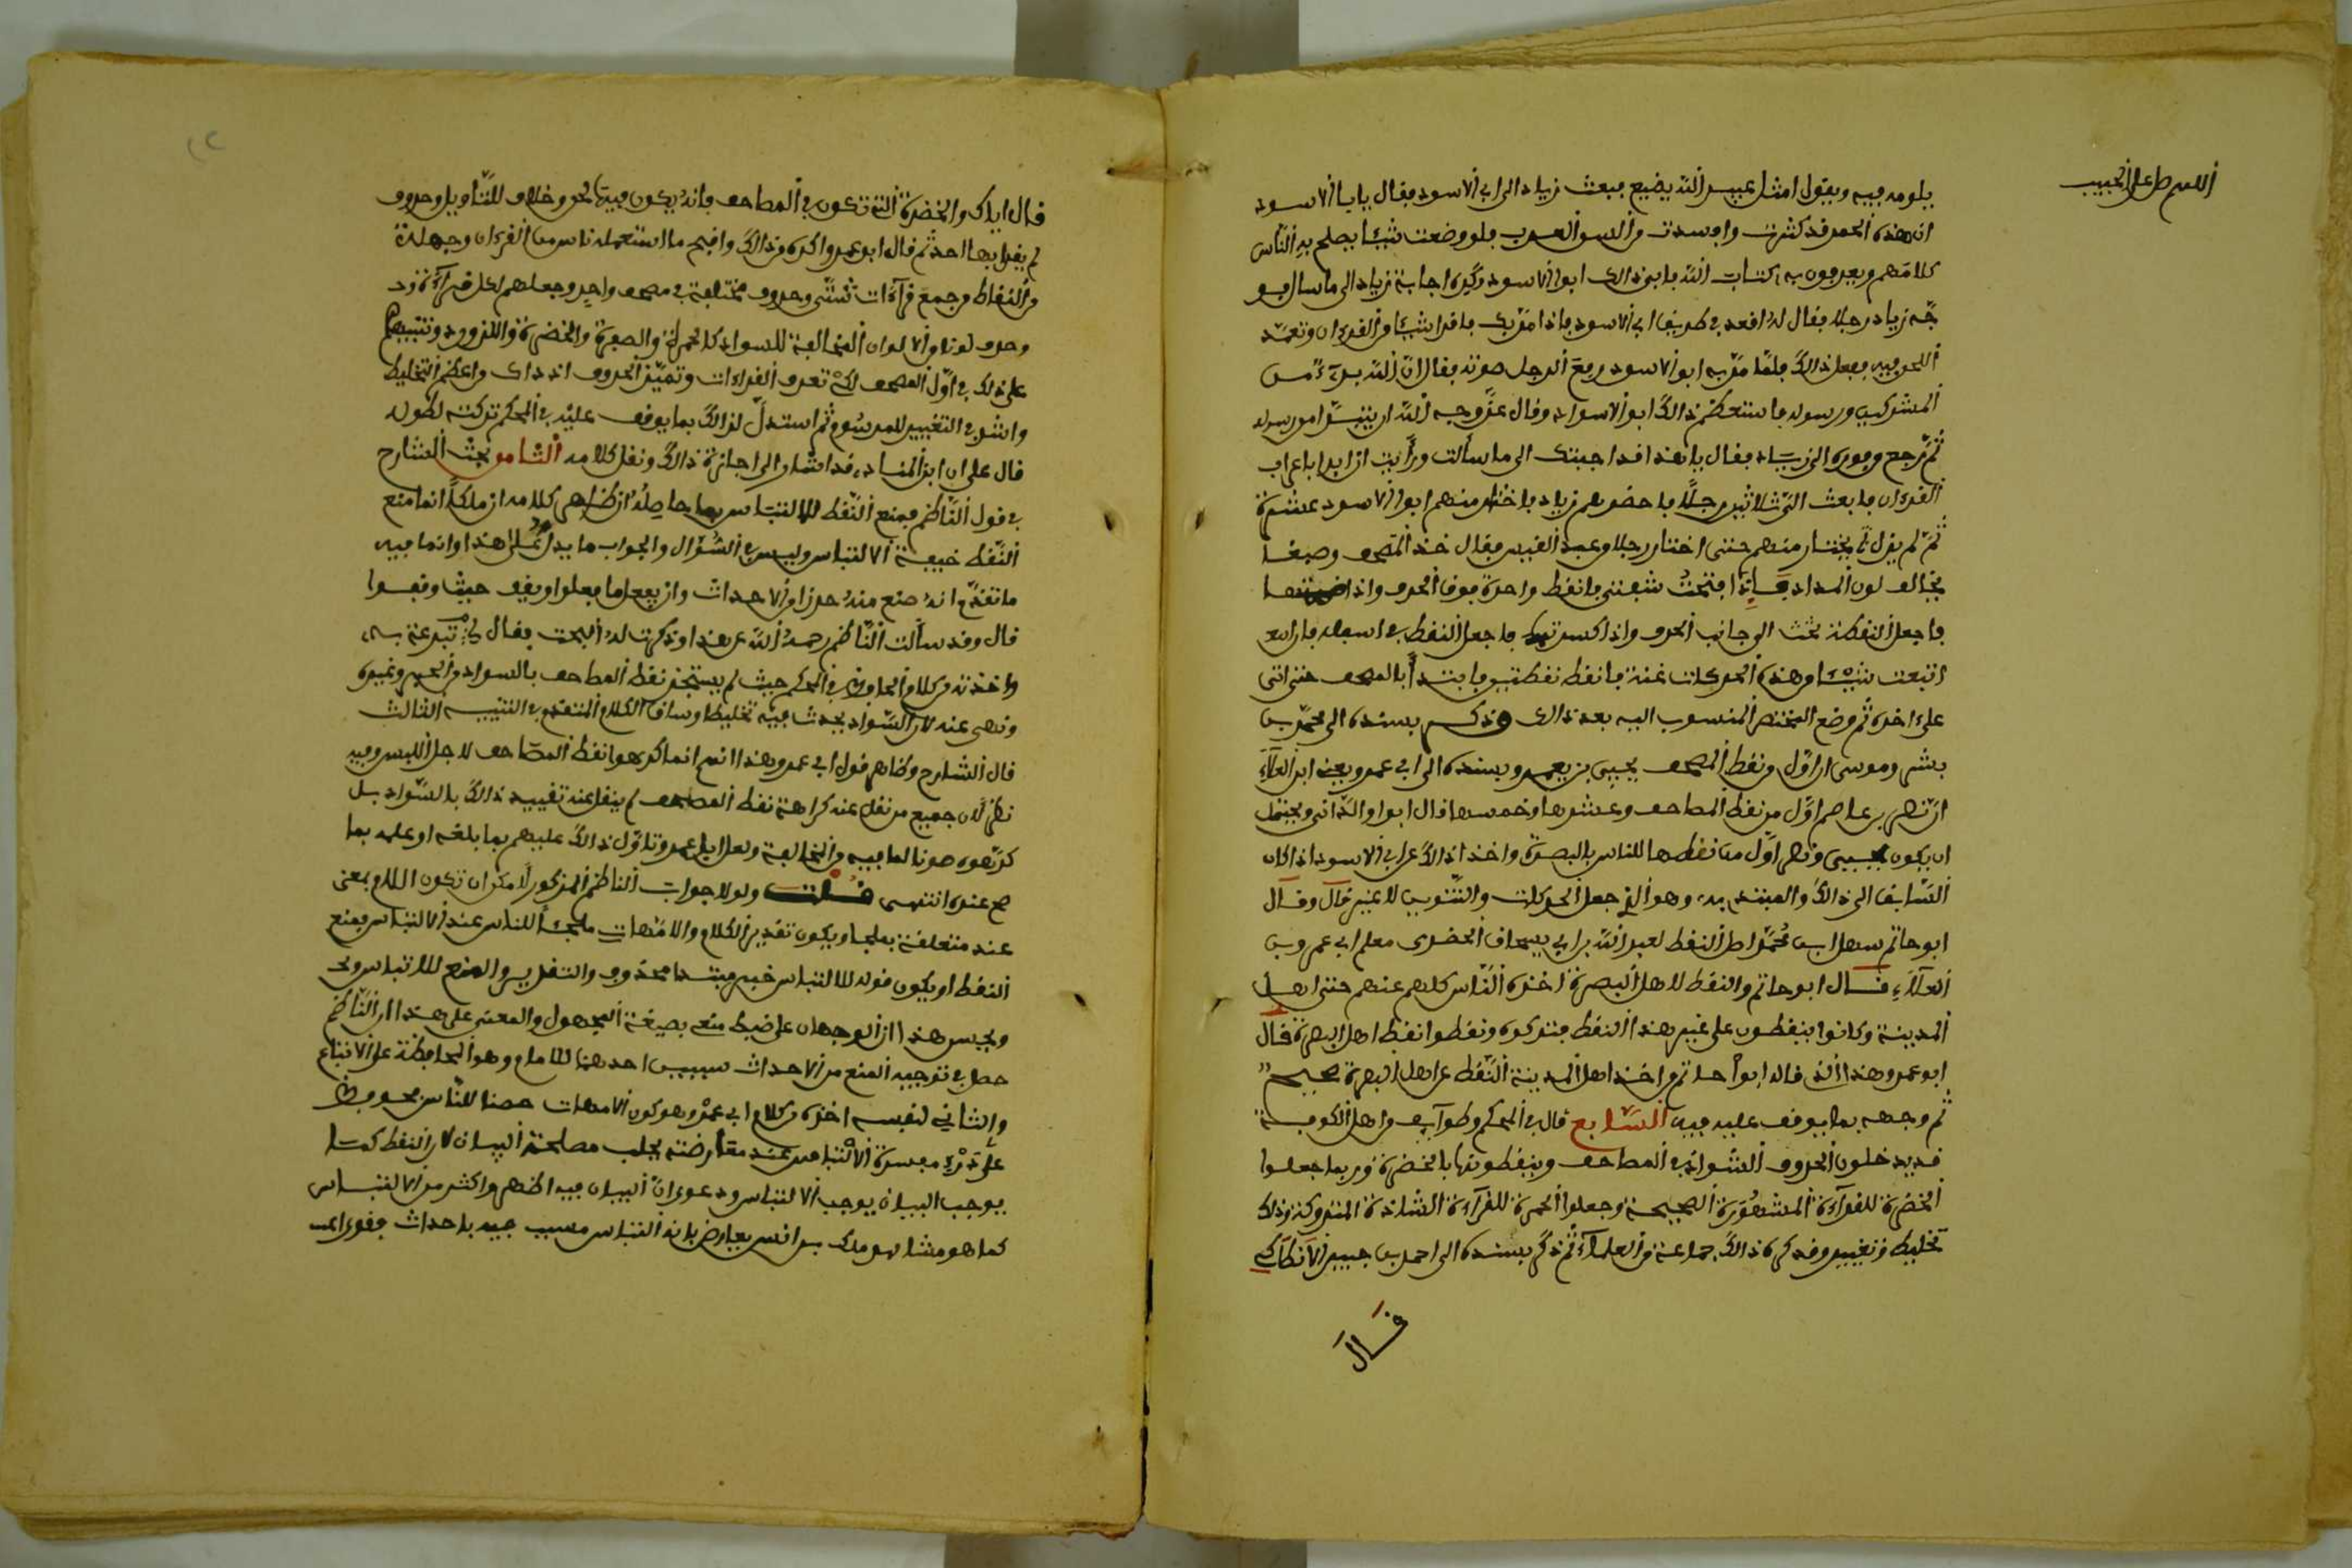 اللهم صل على الحبيب
يلومه فيه ويقول امثل عبيد الله يضيع فبعث زياد الى ابي الاسود فقال يا ابا الاسود
ان هذه الحمر قد كثرت وافسدت من السن العرب فلو وضعت شيئا يصلح به الناس
كلامهم ويعربون به كتاب الله فابى ذالك ابو الاسود وكره اجابة زياد الى ما سال فو
جّه زياد رجلا فقال له اقعد في طريق ابي الاسود فاذا مرّ بك فاقرا شيئا من القرءان وتعمّد
اللحن فيه ففعل ذالك فلمّا مرّ به ابو الاسود رفع الرجل صوته فقال انّ الله برىء من
المشركين ورسوله فاستعظم ذالك ابو الاسود وقال عزّ وجه الله ان يتبرّا من رسوله
ثمّ رجع من فوره الى زياد فقال يا هذا قد اجبتك الى ما سألت ورأيت ان ابدا باعراب
القرءان فابعث اليّ ثلاثين رجلًا فاحضرهم زياد فاختار منهم ابو الاسود عشرة
ثمّ لم يزل يختار منهم حتى اختار رجلا من عبد القيس فقال خذ المصحف وصبغا
يخالف لون المداد فإذا فتحتُ شفتي فانقط واحدة فوق الحرف واذا ضممتها
فاجعل النقطة الى جانب الحرف واذا كسرتها فاجعل النقط في اسفله فان
اتبعت شيئا من هذه الحركات غنة فانقط نقطتين فابتدأ بالمصحف حتى اتى
على اخره ثم وضع المختصر المنسوب اليه بعد ذالك وذكر بسنده الى محمّد بن
بشر وموسى ان اوّل من نقط المصحف يحيى بن يعمر وبسنده الى ابي عمرو يعني ابن العلآء
انّ نصر بن عاصم اوّل من نقط المصاحف وعشرها وخمسها قال ابو ا والدّاني ويحتمل
ان يكون يحيى ونصر اوّل من نقطها للناس بالبصرة واخذا ذالك عن ابي الاسود اذ كان
السّابق الى ذالك والمبتدي به وهو الذي جعل الحركات والتّنوين لا غير قال وقال
ابو حاتم سهل ابن مُحمّد اصل النقط لعبد الله بن ابي يسحاق الحضرى معلم ابي عمرو بن
العلآء قال ابو حاتم والنقط لاهل البصرة اخذه النّاس كلهم عنهم حتى اهل
المدينة وكانوا ينقطون على غير هذا النقط فتركوه ونقطوا نقط اهل البصرة قال
ابو عمرو هذا الذي قاله ابو أحاتم من اخذ اهل المدينة النّقط عن اهل البصرة صحيح
ثم وجهه بما يوقف عليه فيه السّابع قال في المحكم وطوآيف من اهل الكوفة
قد يدخلون الحروف الشواذ في المصاحف وينقطونها بالخضرة وربما جعلوا
الخضرة للقرآءة المشهُورة الصحيحة وجعلوا الحمرة للقرآءة الشاذة المتروكة وذلك
تخليط وتغيير وقد كره ذالك جماعة من العلمآء ثم ذكر بسنده الى احمد بن جبير الانطاكي
قال
قال اياك والخضرة التي تكون في المصاحف فانه يكون فيها لحن وخلاف للتّأويل وحروف
لم يقرا بها احد ثم قال ابو عمرو اكره من ذالك واقبح ما استعمله ناس من القرءان وجهلة
من النقاط من جمع قرآءات شتّى وحروف مختلفة في مصحف واحد وجعلهم لكل قرآءة
وحرف لونا من الالوان المخالفة للسواد كالحمرة والصفرة والخضرة واللازورد وتنبيههم
على ذلك في اوّل المصحف لكي تعرف القراءات وتميّز الحروف اذ ذاك من اعظم التخليط
واشد التغيير للمرسوم ثم استدلّ لذالك بما يوقف عليه في المحكم تركته لطوله
قال على ان ابن المنادي قد اشار الى اجازة ذالك ونقل كلامه الثامن بحث الشارح
في قول النّاظم فمنع النّقط للالتباس بما حاصله ان ظاهر كلامه ان مالكا انما منع
النّقط خيفة الالتباس وليس في السُّؤال والجواب ما يدل على هذا وانما فيه
ما تقدّم انه منع منه حذرا من الاحداث وان يفعل ما فعلوا ويقف حيث وقفوا
قال وقد سألت النّاظم رحمه الله عن هذا وذكرت له البحث فقال لي تبرعت به
واخذته من كلام الحافظ في المحكم حيث لم يستجز نقط المصاحف بالسواد من الحبر وغيره
ونهى عنه لان السّواد يحدث فيه تخليطا وساق الكلام المتقدم في التنبيه الثالث
قال الشارح وظاهر قول ابي عمرو هذا انهم انما كرهوا نقط المصاحف لاجل اللبس وفيه
نظر لان جميع من نقل عنه كراهة نقط المصاحف لم ينقل عنه تقييد ذالك بالسّواد بل
كرّهوه صونا لما فيه من المخالفة ولعل ابا عمرو تاوّل ذالك عليهم بما بلغه او علمه بما
صح عنده انتهى قلت ولولا جواب الناظم المذكور لامكن ان تكون اللام بمعنى
عند متعلقة بملجا ويكون تقدير الكلام والامّهات ملجأ للناس عند الالتباس فمنع
النقط او يكون قوله للالتباس خبر مبتدا محذوف والتقدير والمنع للالتباس
ويجيء هذا ان الوجهان على ضبط منع بصيغة المجهول والمعنى على هذا ان النّاظم
حصل في توجيه المنع من الاحداث سببين احدهما للامام وهو المحافظة على الاتباع
والثاني لنفسه اخذه من كلام ابي عمرو وهو كون الامهات حصنا للنّاس
على دَرْءِ مفسدة الالتباس عند معارضته بجلب مصلحة البيان لان النقط كما
يوجب البيان يوجب الالتباس ودعوى انّ البيان فيه اظهر واكثر من الالتباس
كما هو مشا مالك بن انس يعارض بانه التباس مسبب فيه باحداث